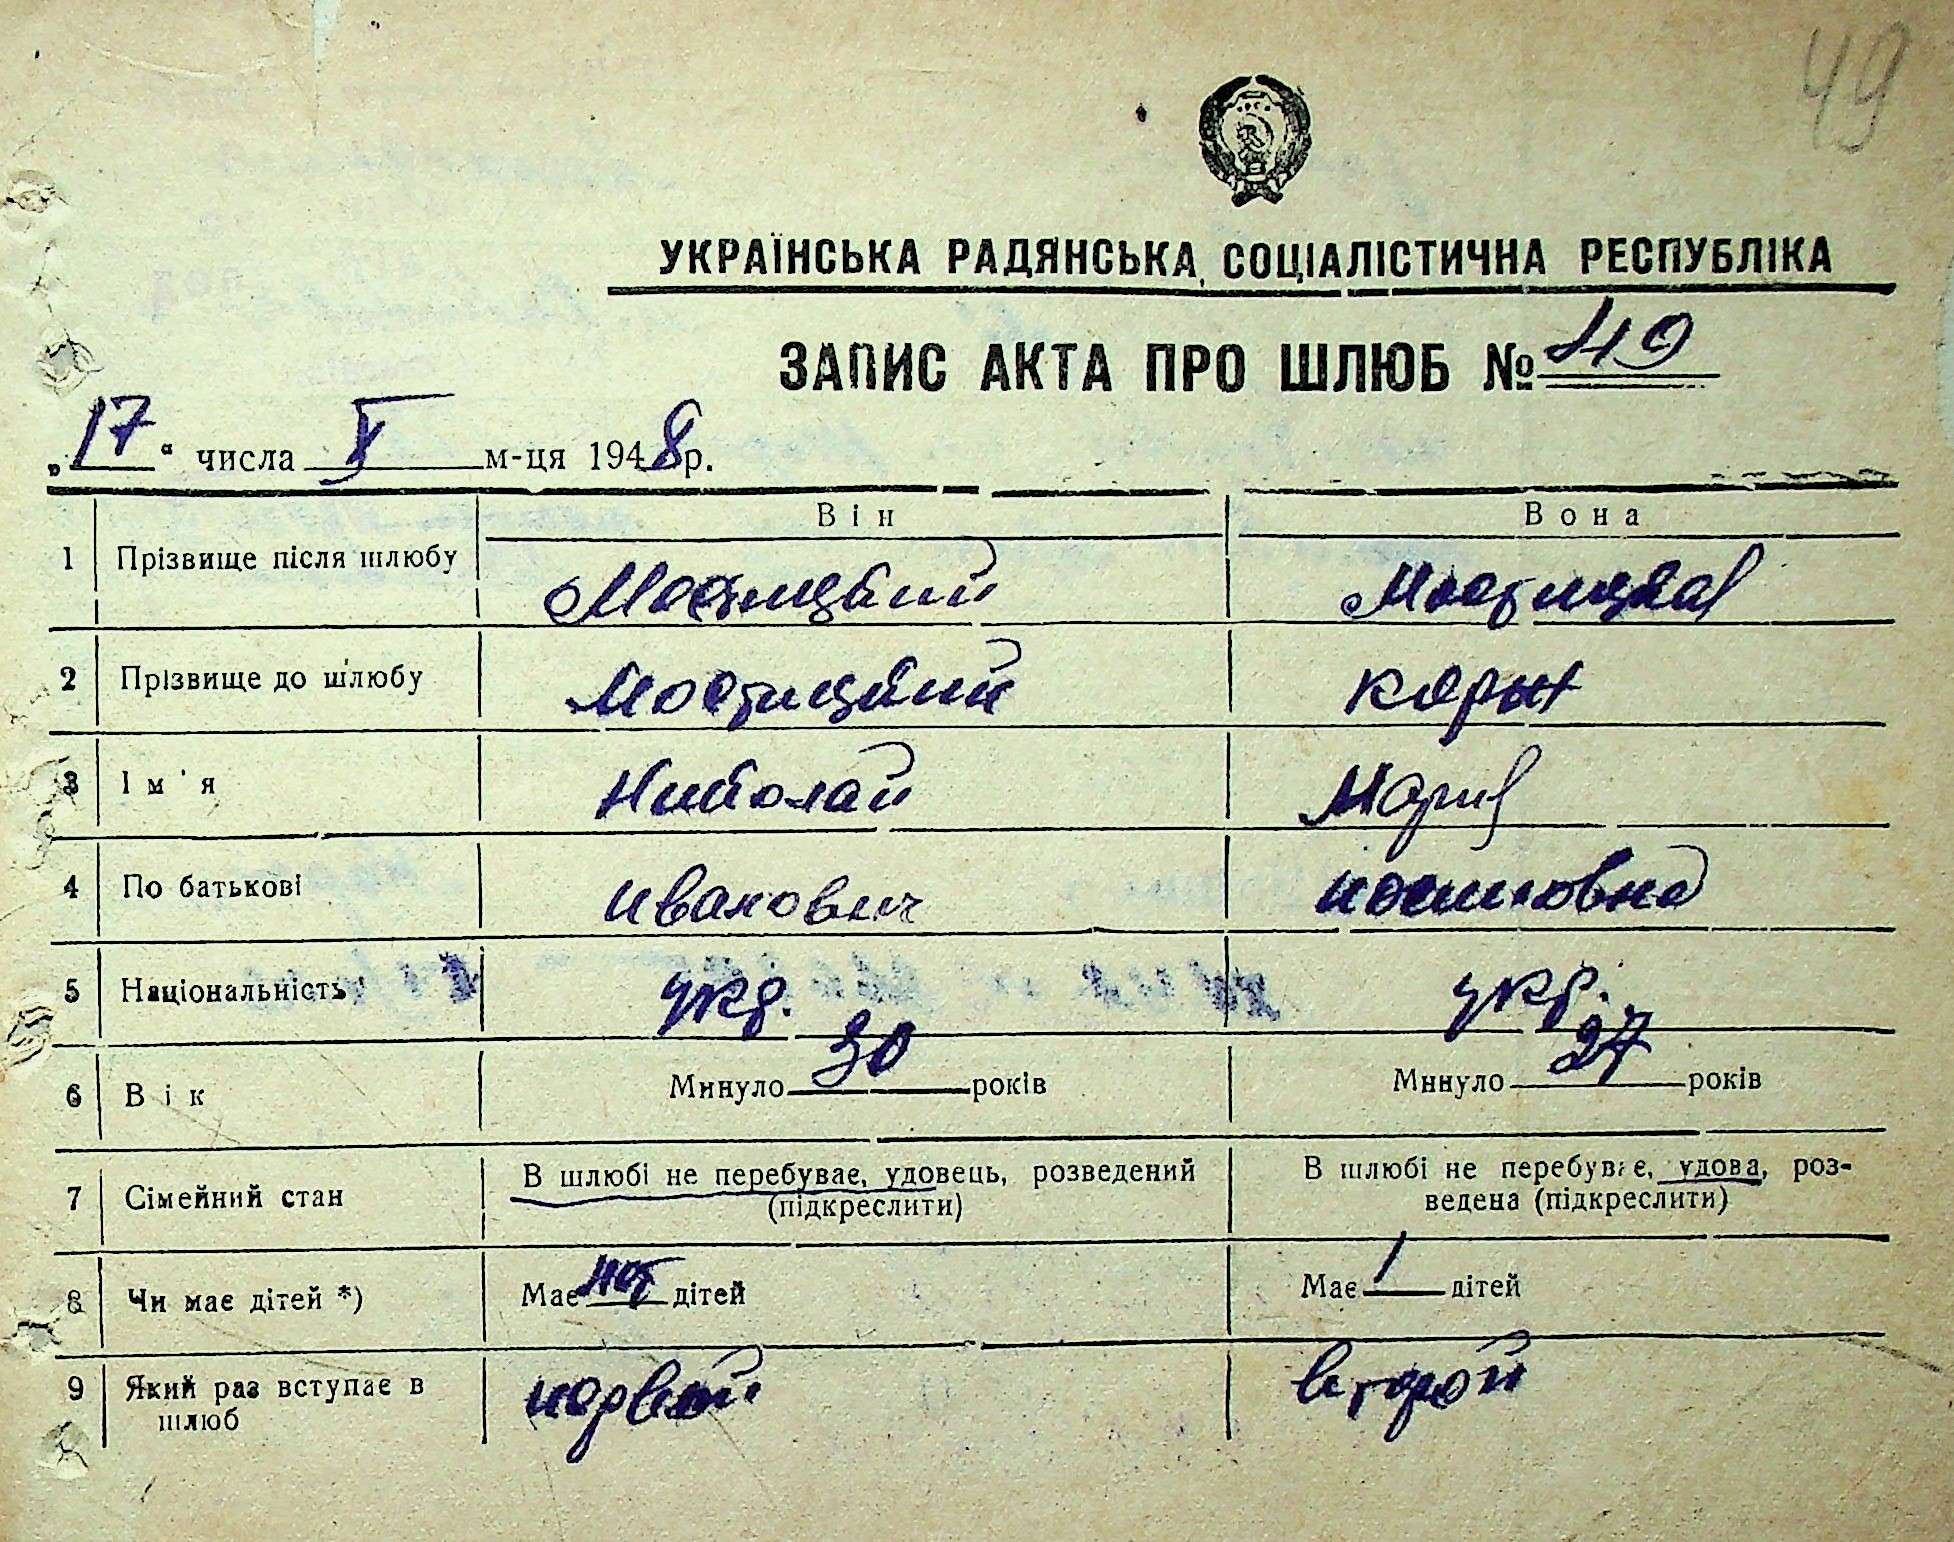 49
УКРАЇНСЬКА РАДЯНСЬКА СОЦІАЛІСТИЧНА РЕСПУБЛІКА
ЗАПИС АКТА ПРО ШЛЮБ № 49
„17" числа X м-ця 1948 р.
Він Вона
1 Прізвище після шлюбу Мостицкий Мостицкая
2 Прізвище до шлюбу Мостицкий Корын
3 Ім'я Николай Мария
4 По батькові Иванович Иосиповна
5 Національність укр. укр.
6 Вік Минуло 30 років Минуло 27 років
7 Сімейний стан В шлюбі не перебуває, удовець, розведений (підкреслити) В шлюбі не перебуває, удова, розведена (підкреслити)
8 Чи має дітей *) Має нет дітей Має 1 дітей
9 Який раз вступає в шлюб первый второй